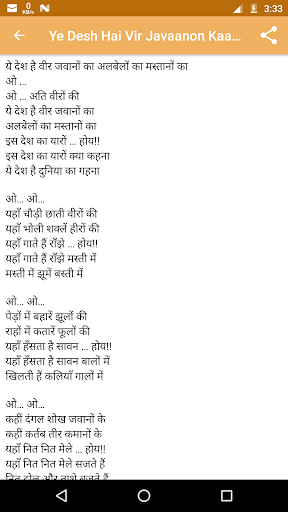 0
KB/s
3:33
Ye Desh Hai Vir Javaanon Kaa...
ये देश है वीर जवानों का अलबेलों का मस्तानों का
ओ ...
ओ ... अति वीरों की
ये देश है वीर जवानों का
अलबेलों का मस्तानों का
इस देश का यारों ... होय!!
इस देश का यारों क्या कहना
ये देश है दुनिया का गहना
ओ... ओ...
यहाँ चौड़ी छाती वीरों की
यहाँ भोली शक्लें हीरों की
यहाँ गाते हैं राँझे ... होय!!
यहाँ गाते हैं राँझे मस्ती में
मस्ती में झूमें बस्ती में
ओ... ओ...
पेड़ों में बहारें झूलों की
राहों में कतारें फूलों की
यहाँ हँसता है सावन ... होय!!
यहाँ हँसता है सावन बालों में
खिलती हैं कलियाँ गालों में
ओ... ओ...
कहीं दंगल शोख जवानों के
कहीं कर्तब तीर कमानों के
यहाँ नित नित मेले ... होय!!
यहाँ नित नित मेले सजते हैं
नित ढोल और ताशे बजते हैं